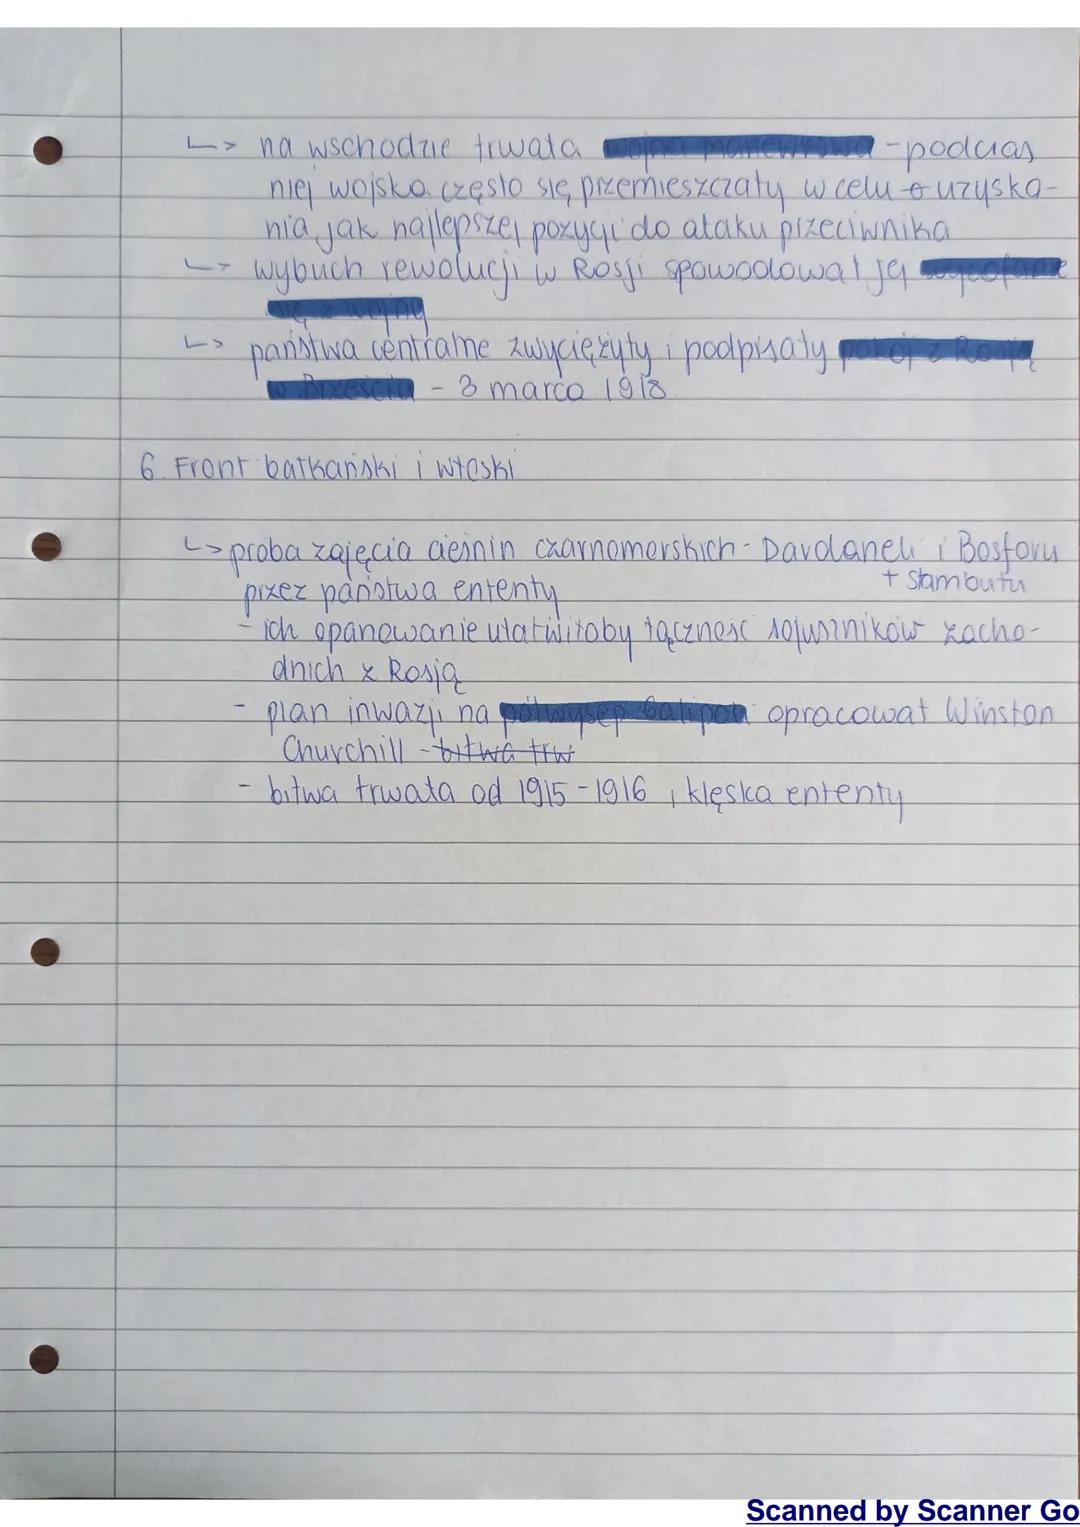 ↳ na wschodzie trwała wojna manewrowa - podczas
niej wojska często się przemieszczały w celu o uzyska-
nia jak najlepszej pozycji do ataku przeciwnika
↳ wybuch rewolucji w Rosji spowodował jej wycofanie
się z wojny
↳ państwa centralne zwyciężyły i podpisały pokój z Rosją
w Brześciu - 3 marca 1918
6. Front bałkański i włoski
↳ proba zajęcia cieśnin czarnomorskich - Dardaneli i Bosforu
+ Stambułu
przez państwa ententy
- ich opanowanie ułatwiłoby łączność sojuszników zacho-
dnich z Rosją
- plan inwazji na półwysep Galipoli opracował Winston
Churchill - bitwa trw
- bitwa trwała od 1915 - 1916, klęska ententy
Scanned by Scanner Go